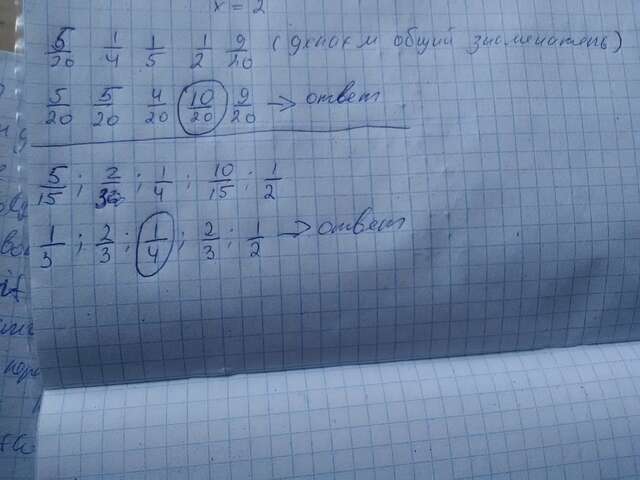 x = 2
5/20 1/4 1/5 1/2 9/20 (делаем общий знаменатель)
5/20 5/20 4/20 10/20 9/20 → ответ
5/15 ; 2/3 ; 1/4 ; 10/15 ; 1/2
1/3 ; 2/3 ; 1/4 ; 2/3 ; 1/2 → ответ